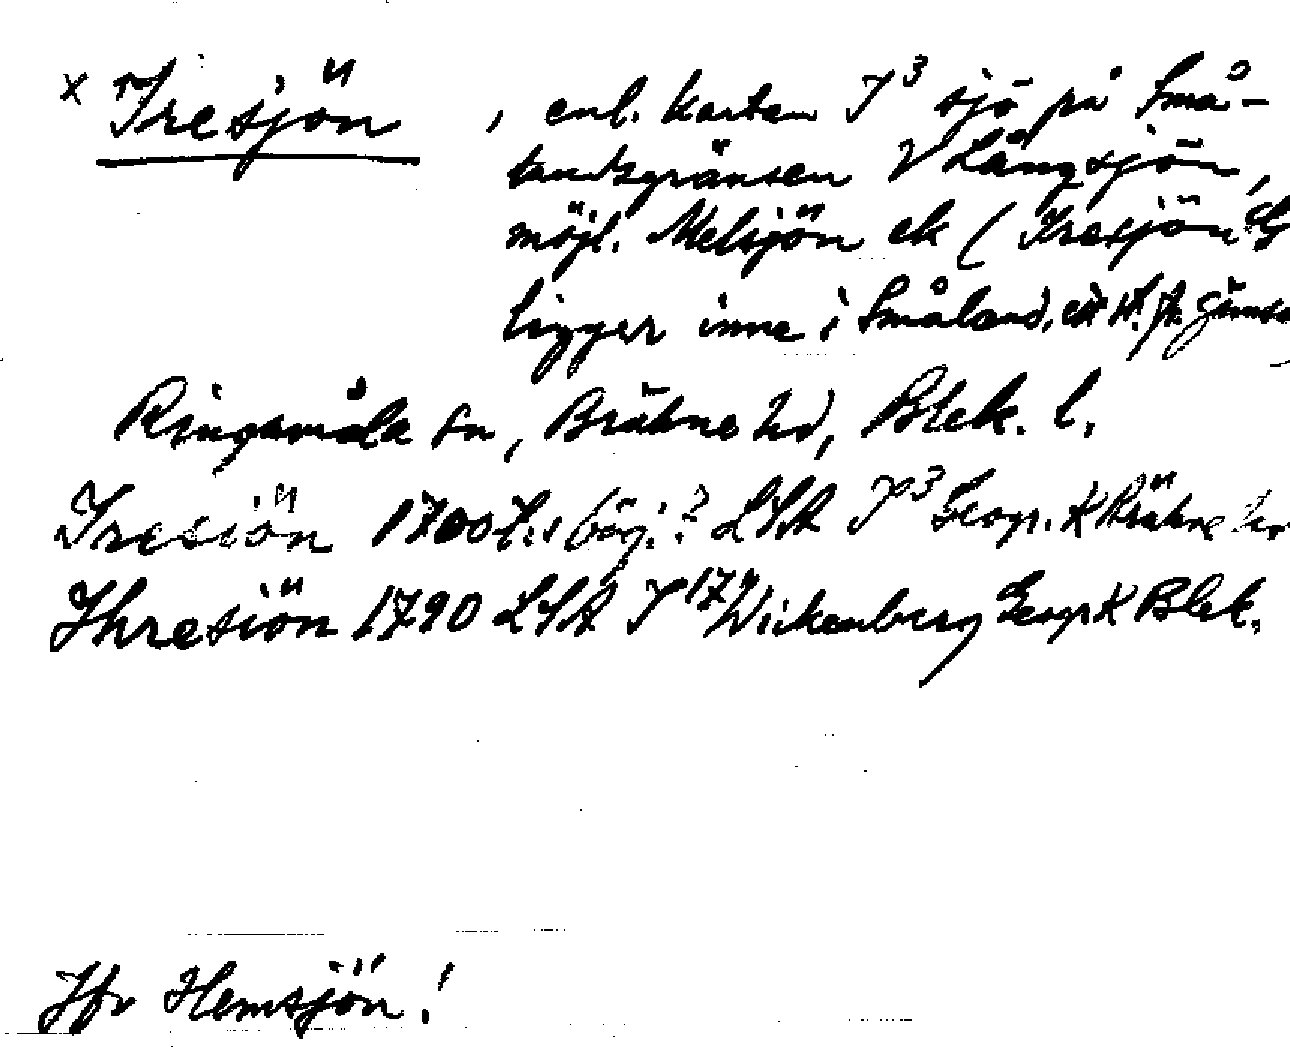 x Iresjön , enl. kartan I³ sjö på Små-
landsgränsen V Långsjön,
möjl. Melsjön ek (Iresjön
ligger inne i Småland,
Ringamåla sn, Bräkne hd, Blek. l.
Iresiön 1700t.s börj.? LSA I³ Geogr. K Bräkne hr
Ihresiön 1790 LSA I¹⁷ Wickenberg Geogr K Blek.
Jfr Hemsjön!